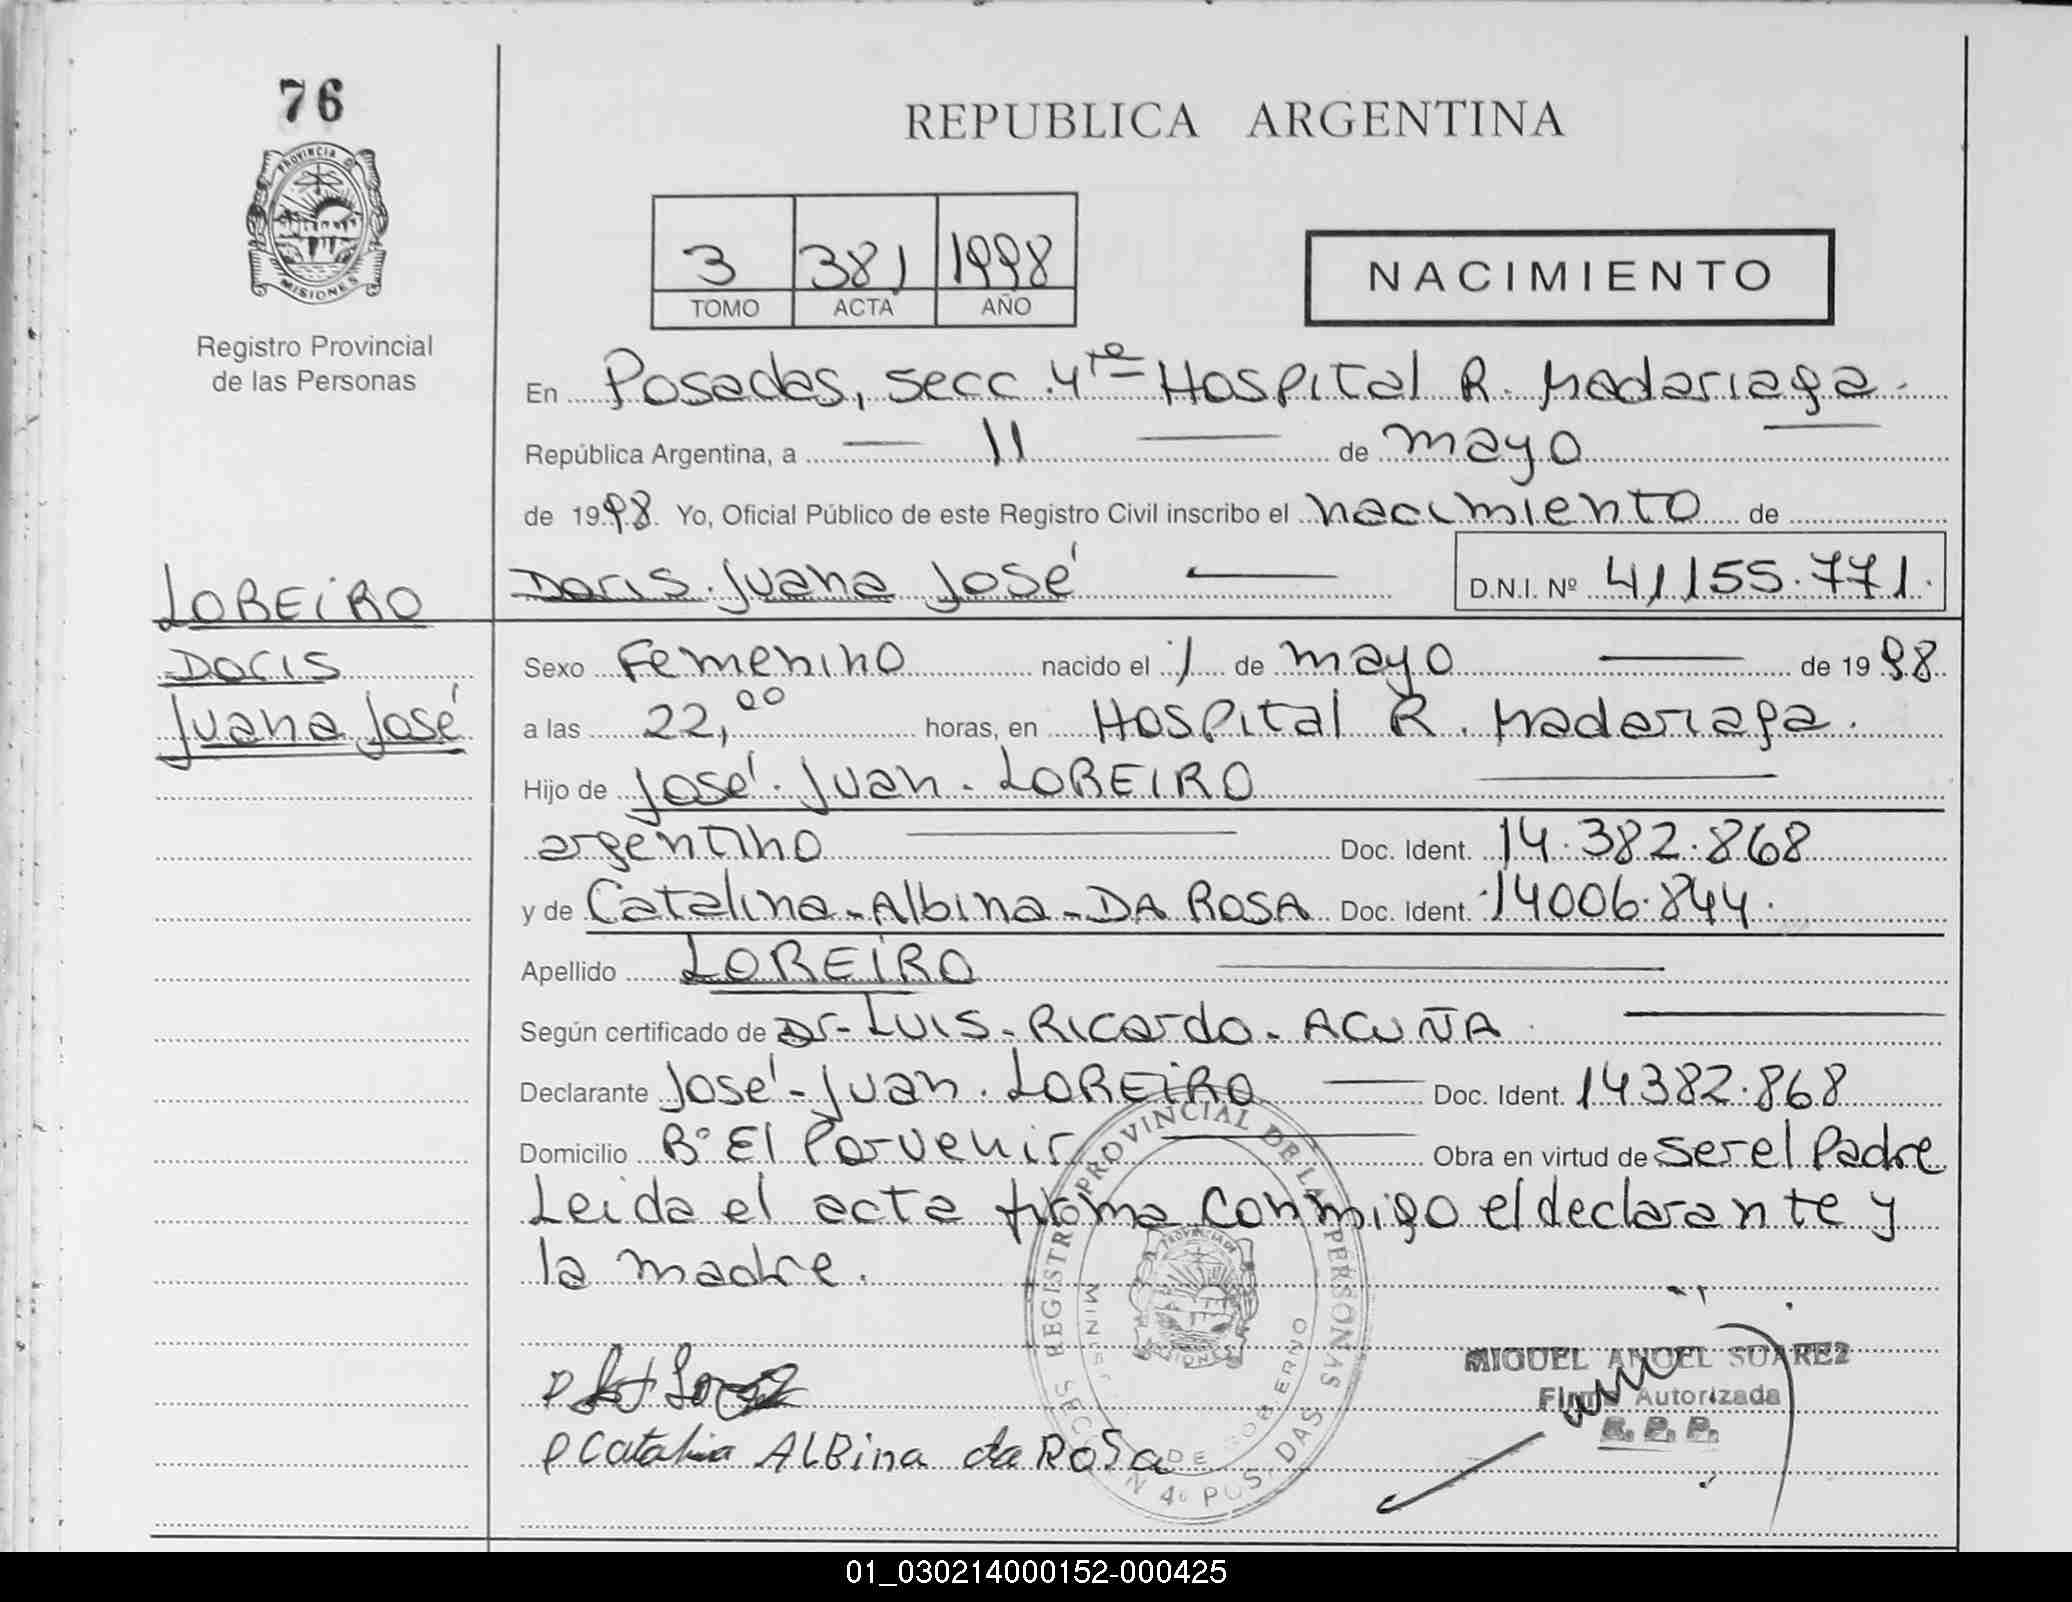 76
PROVINCIA DE
MISIONES
Registro Provincial
de las Personas
REPUBLICA ARGENTINA
3 381 1998
TOMO ACTA AÑO
NACIMIENTO
En Posadas, secc. 4ta Hospital R. Madariaga.
República Argentina, a 11 de mayo
de 1998. Yo, Oficial Público de este Registro Civil inscribo el nacimiento de
Doris Juana José D.N.I. Nº 41155.771.
LOREIRO
Doris
Juana José
Sexo Femenino nacido el 1 de mayo de 1998
a las 22,00 horas, en Hospital R. Madariaga.
Hijo de José. Juan. LOREIRO
argentino Doc. Ident. 14.382.868
y de Catalina-Albina-DA ROSA Doc. Ident. 14006.844.
Apellido LOREIRO
Según certificado de Dr-Luis-Ricardo-ACUÑA
Declarante José-Juan. LOREIRO Doc. Ident. 14382.868
Domicilio Bº El Porvenir Obra en virtud de ser el Padre
Leida el acta firma conmigo el declarante y
la madre.
REGISTRO PROVINCIAL DE LAS PERSONAS
DE GOBIERNO
4º POSADAS
MIGUEL ANGEL SUAREZ
Firma Autorizada
R. P. P.
Catalina ALBina da RoSa
01_030214000152-000425